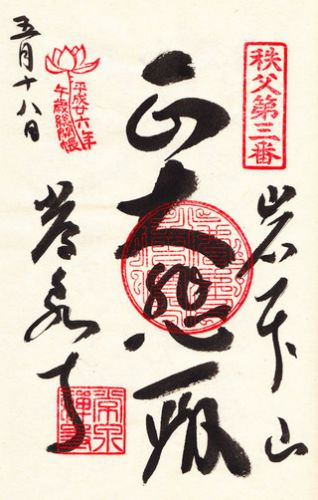 秩父第三番
岩本山
正大悲殿
平成廿六年
午歳総開帳
常泉寺
常泉
禅寺
五月十八日